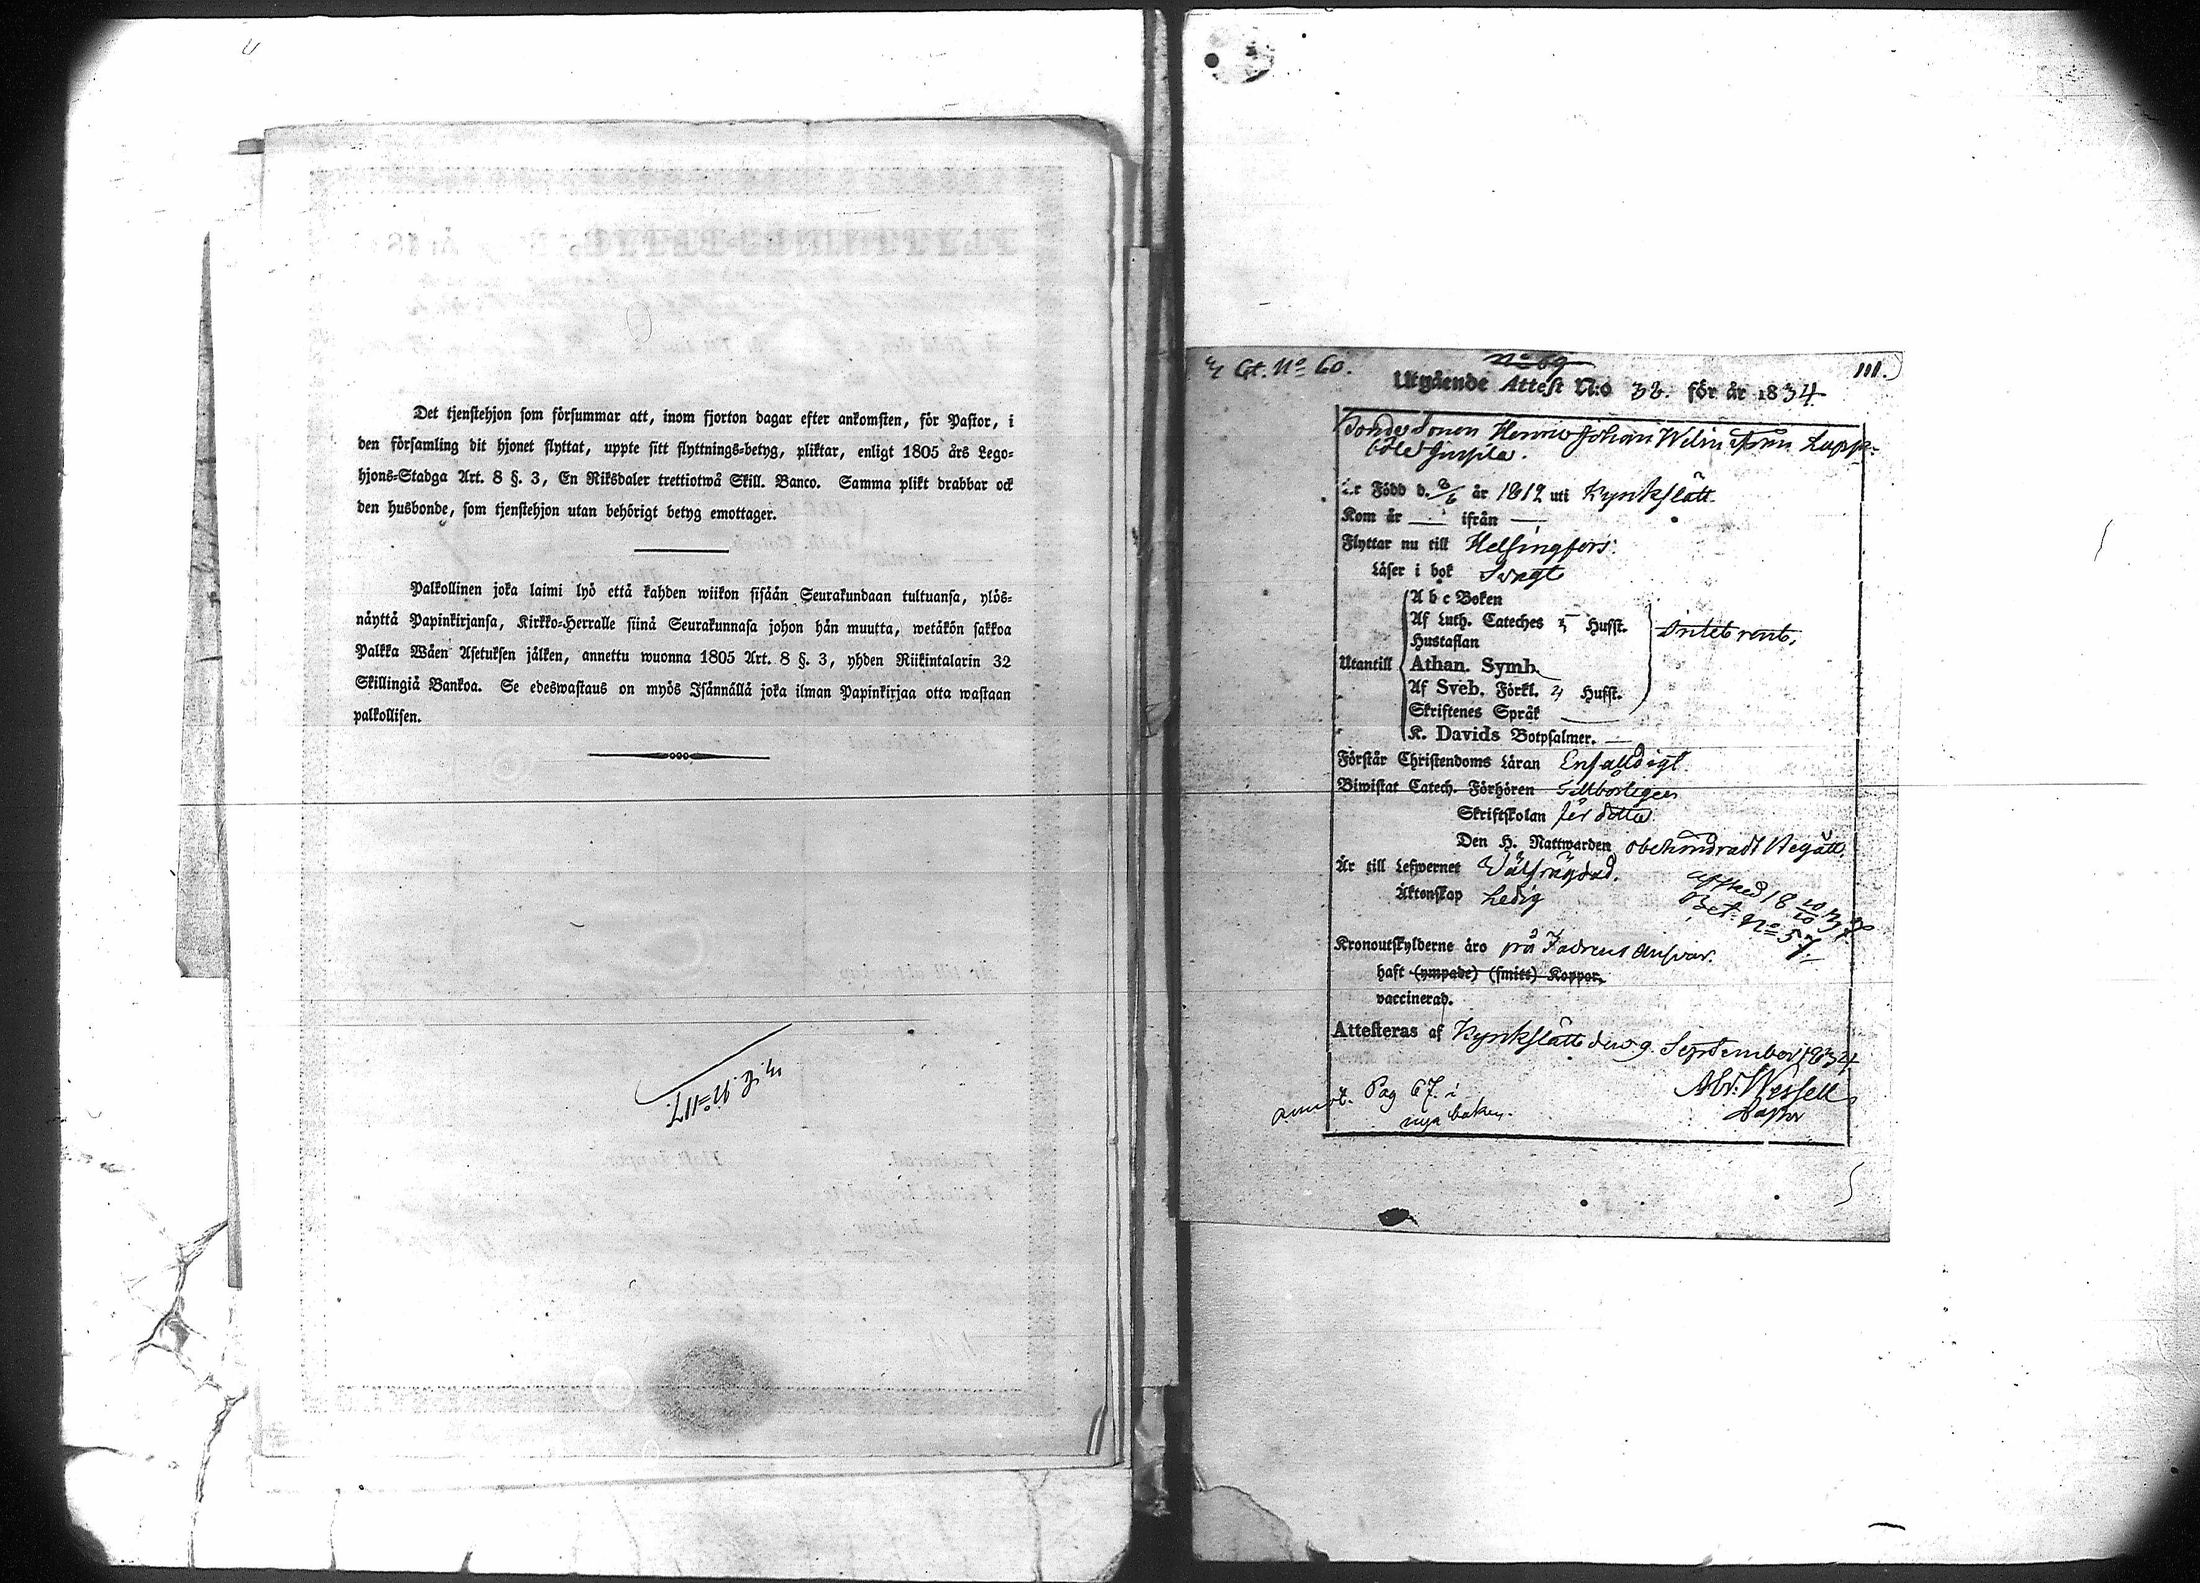 Det tjenstehjon som försummar att, inom fjorton dagar efter ankomsten, för Pastor, i
den församling dit hjonet flyttat, uppte sitt flyttnings-betyg, pliktar, enligt 1805 års Lego-
hjons-Stadga Art. 8 §. 3, En Riksdaler trettiotwå Skill. Banco. Samma plikt drabbar ock
den husbonde, som tjenstehjon utan behörigt betyg emottager.
Palkollinen joka laimi lyö että kahden wiikon sisään Seurakundaan tultuansa, ylös-
näyttä Papinkirjansa, Kirkko-Herralle siinä Seurakunnasa johon hän muutta, wetäkön sakkoa
Palkka Wäen Asetuksen jälken, annettu wuonna 1805 Art. 8 §. 3, yhden Riikintalarin 32
Skillingiä Bankoa. Se edeswastaus on myös Isännällä joka ilman Papinkirjaa otta wastaan
palkollisen.
N:o 117.
Ct. No 60.
No 69
111.
Utgående Attest N:o 32. för år 1834
Bonde Sonen Henric Johan ifrån Lapp-
böle
är Född d. 8/6 år 1812 uti Kyrkslätt
Kom år — ifrån —
Flyttar nu till Helsingfors.
Läser i bok Svagt
A b c Boken
Af Luth. Cateches Hufst.
Hustaflan
Utantill Athan. Symb.
Af Sveb. Förkl. Hufst.
Skriftenes Språk
K. Davids Botpsalmer. —
Förstår Christendoms Läran Enfaldigt
Biwistat Catech. Förhören Tillbörligen
Skriftskolan
Den H. Nattwarden obehindradt Begått.
Är till Lefwernet Välfrägdad.
Äktenskap Ledig
Bet. No 57.
Kronoutskylderne äro på Fadrens Ansvar.
haft (ympade) (smitt) Koppor.
vaccinerad.
Attesteras af Kyrkslätt den 9. September 1834
Abr. Wessell
Pastor
annot. Pag 67. i
nya boken.